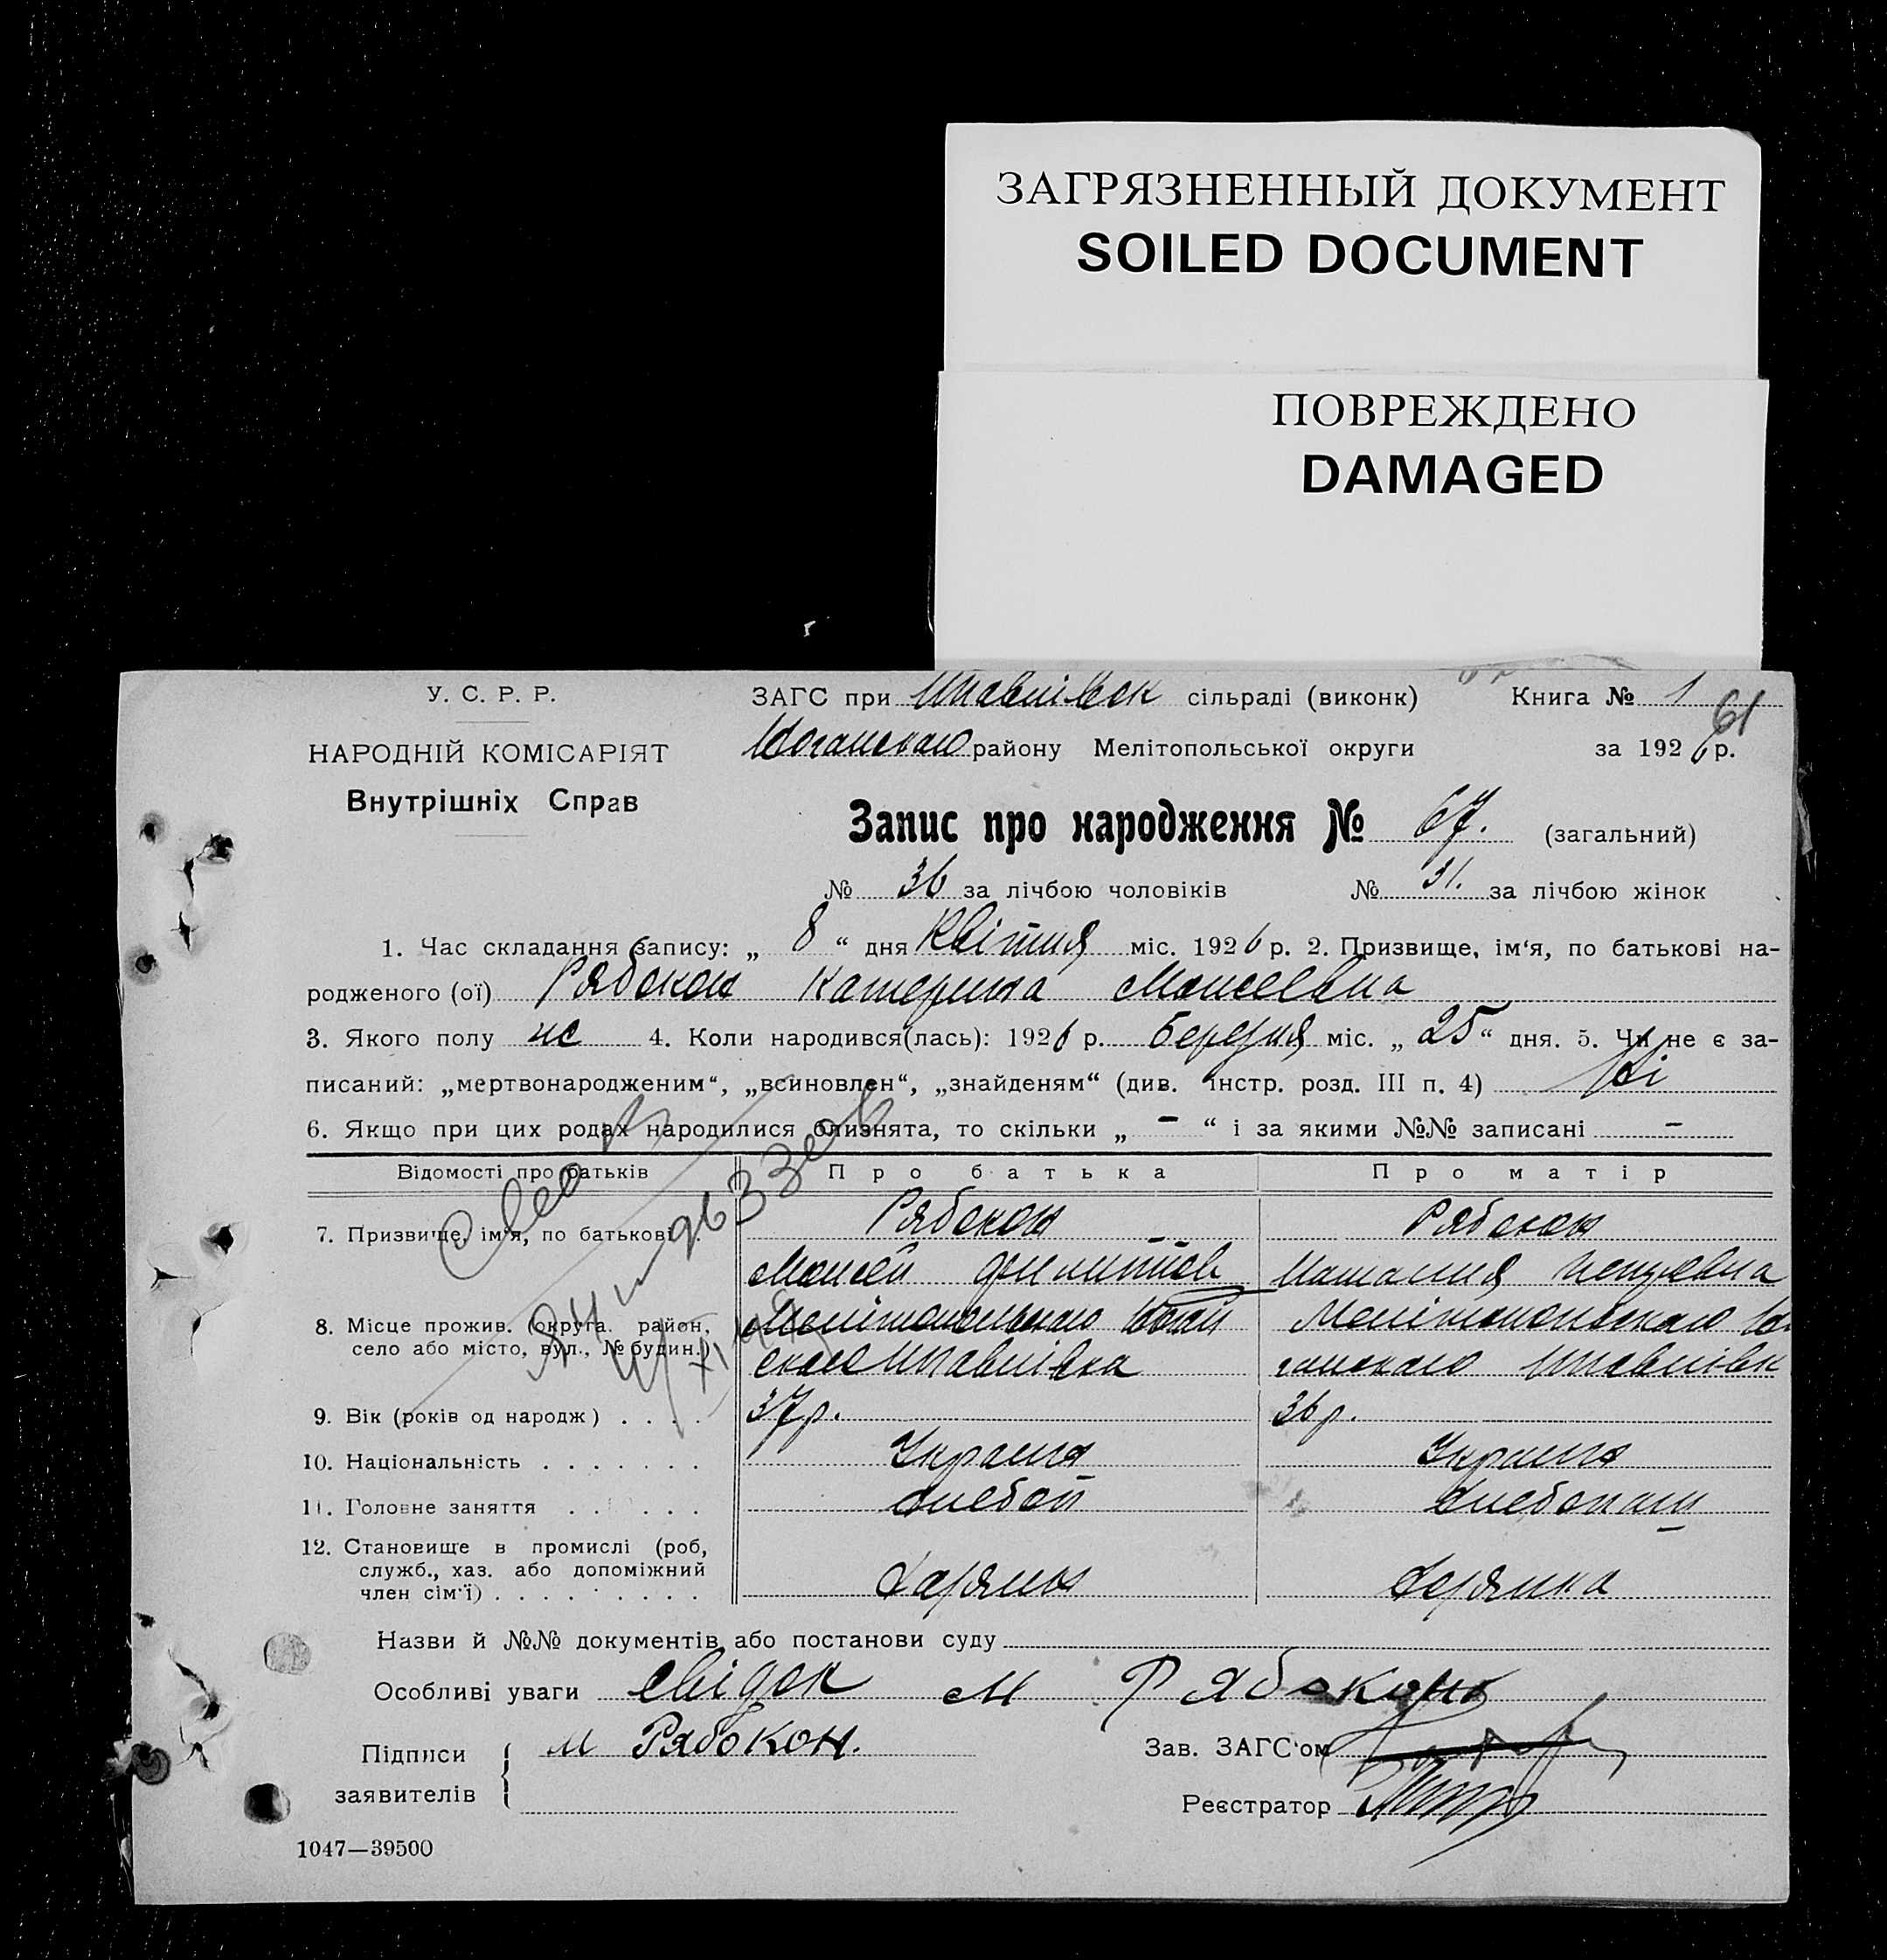 ЗАГРЯЗНЕННЫЙ ДОКУМЕНТ
SOILED DOCUMENT
ПОВРЕЖДЕНО
DAMAGED
У. С. Р. Р.
НАРОДНІЙ КОМІСАРІЯТ
Внутрішніх Справ
ЗАГС при сільраді (виконк) Книга № 1
61
району Мелітопольської округи за 1926 р.
Запис про народження № 67. (загальний)
№ 36 за лічбою чоловіків № 31. за лічбою жінок
1. Час складання запису: „ 8 “ дня Квітня міс. 1926 р. 2. Призвище, ім‘я, по батькові на-
родженого (ої) Рябокон Катерина Моисеевна
3. Якого полу жс 4. Коли народився(лась): 1926 р. березня міс. „ 25 “ дня. 5. Чи не є за-
писаний: „мертвонародженим“, „всиновлен“, „знайденям“ (див. інстр. розд. III п. 4) Ні
6. Якщо при цих родах народилися близнята, то скільки „ – “ і за якими №№ записані –
Відомості про батьків Про батька Про матір
7. Призвище, ім‘я, по батькові . Рябокон Рябокон
Моисей Филипов Наталия
8. Місце прожив. (округа. район, Мелітопольскаго Мелітопольскаго
село або місто, вул., № будин.)
9. Вік (років од народж) . . . . 37 р. 36 р.
10. Національність . . . . . . . Украина Украина
11. Головне заняття . . . . . . хлебоп хлебопаш
12. Становище в промислі (роб,
служб., хаз. або допоміжний
член сім‘ї) . . . . . . . . .
Назви й №№ документів або постанови суду
Особливі уваги свідок М Рябоконь
Підписи М Рябокон. Зав. ЗАГС‘ом
заявителів Реєстратор
1047—39500